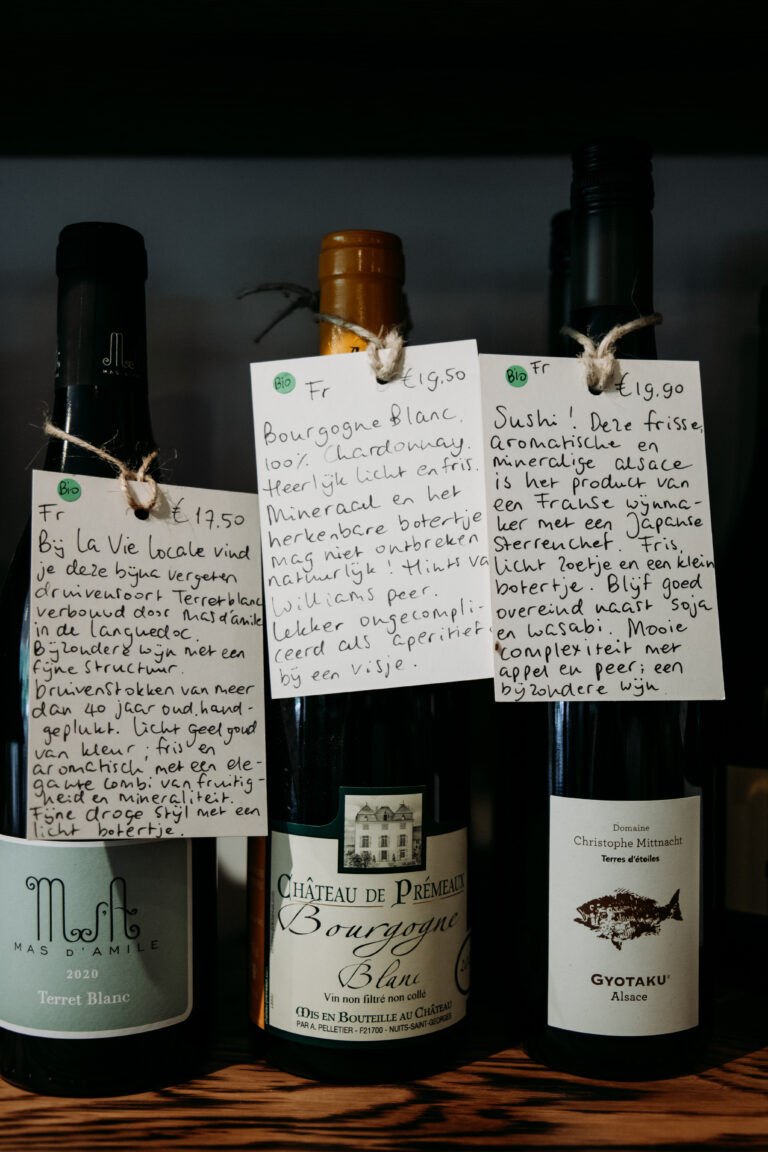 M
MAS D'AMILE
Bio
Fr € 17.50
Bij La Vie Locale vind
je deze bijna vergeten
druivensoort Terret blanc
verbouwd door Mas d'amile
in de Languedoc.
Bijzondere wijn met een
fijne structuur.
Druivenstokken van meer
dan 40 jaar oud, hand-
geplukt. Licht geel goud
van kleur; fris en
aromatisch, met een ele-
gante combi van fruitig-
heid en mineraliteit.
Fijne droge stijl met een
licht botertje.
MS'A
MAS D'AMILE
2020
Terret Blanc
Bio
Fr € 19.50
Bourgogne Blanc.
100% Chardonnay.
Heerlijk licht en fris.
Mineraal en het
herkenbare botertje
mag niet ontbreken
natuurlijk! Hints va
Williams peer.
Lekker ongecompli-
ceerd als aperitief
bij een visje.
CHÂTEAU DE PRÉMEAUX
Bourgogne
Blanc
Vin non filtré non collé
MIS EN BOUTEILLE AU CHÂTEAU
PAR A. PELLETIER - F21700 - NUITS-SAINT-GEORGES
Bio Fr
€19.90
Sushi! Deze frisse,
aromatische en
mineralige alsace
is het product van
een Franse wijnma-
ker met een Japanse
Sterrenchef. Fris,
licht zoetje en een klein
botertje. Blijf goed
overeind naast soja
en wasabi. Mooie
complexiteit met
appel en peer; een
bijzondere wijn.
Domaine
Christophe Mittnacht
Terres d'étoiles
GYOTAKU
Alsace